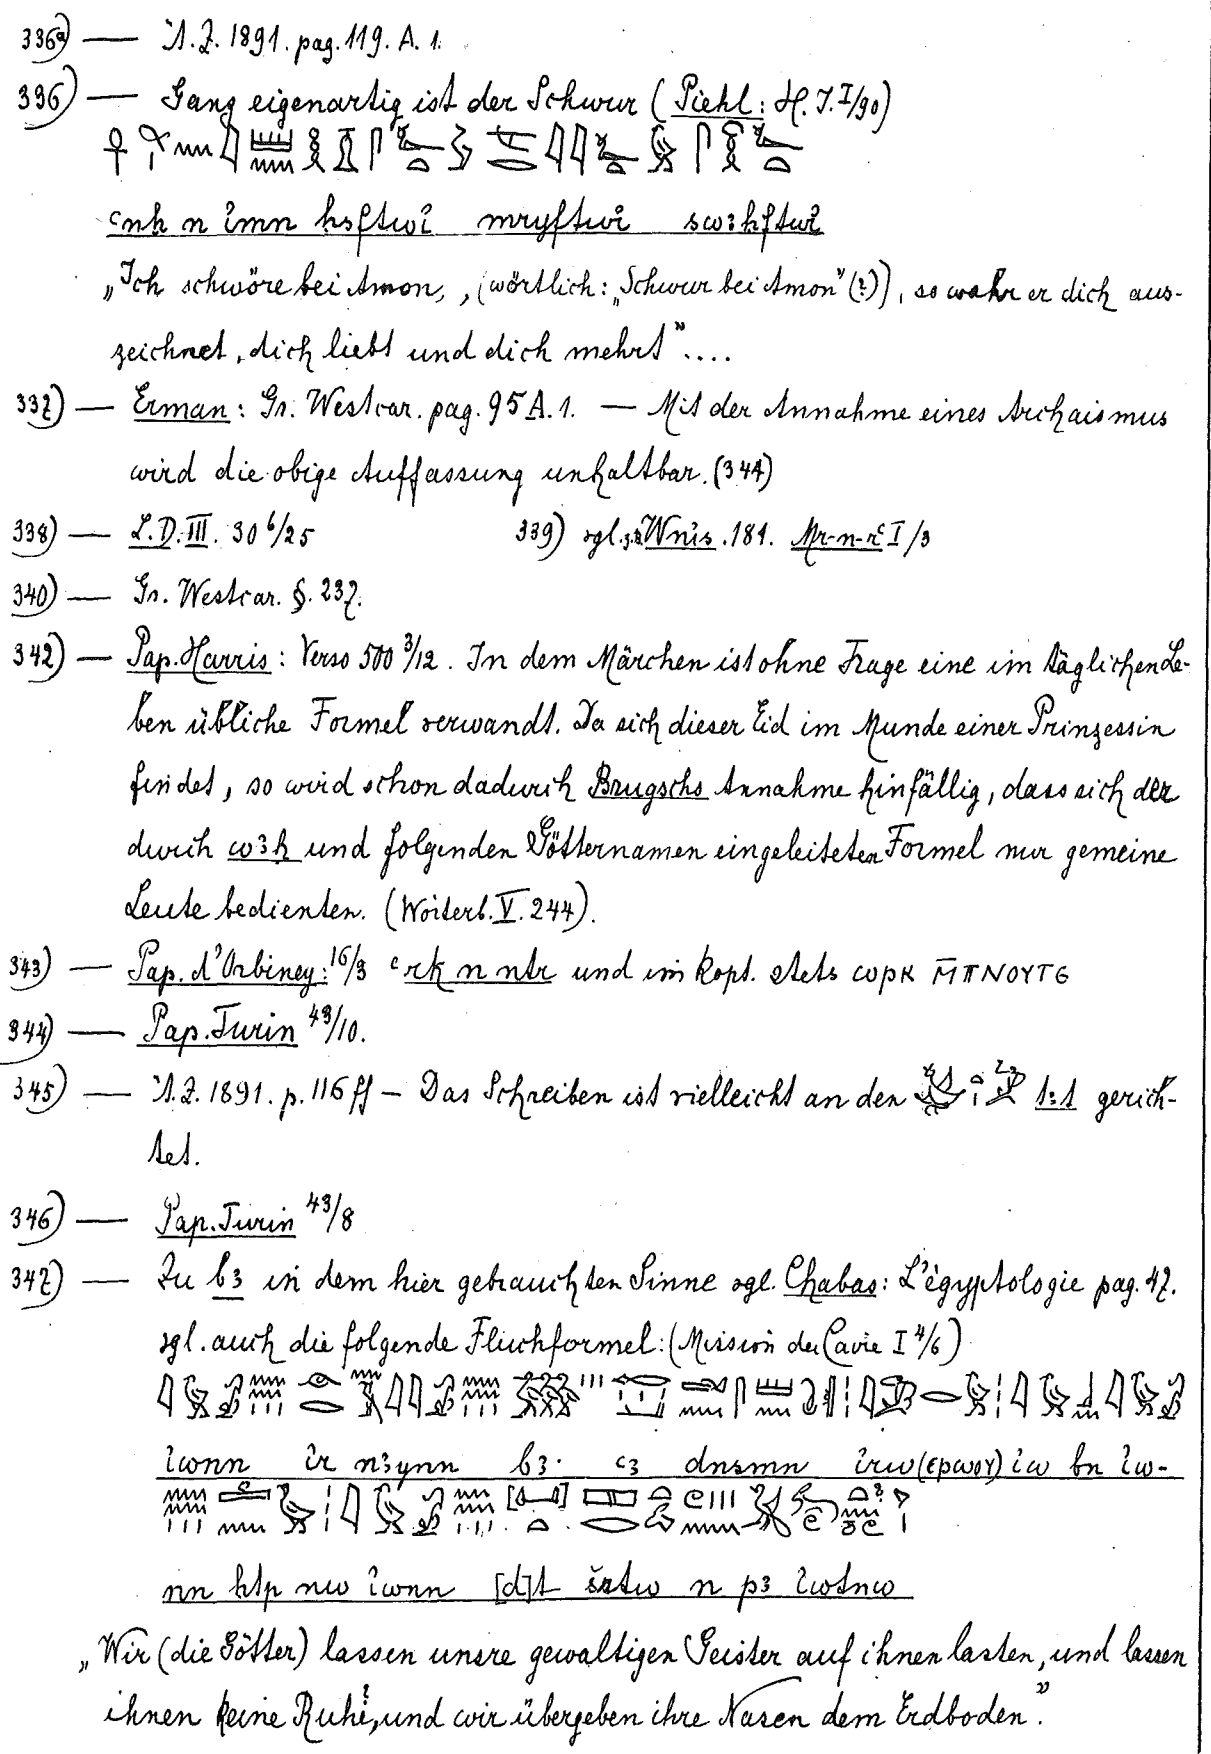 336a) — Ä.Z. 1891. pag. 119. A. 1.
336) — Ganz eigenartig ist der Schwur (Piehl: H. J. I/90)
ꜥnḫ n ỉmn ḥsftwỉ mryftwỉ swꜣḥftwỉ
„Ich schwöre bei Amon, (wörtlich: „Schwur bei Amon" (?)), so wahr er dich aus-
zeichnet, dich liebt und dich mehrt"....
337) — Erman: Gr. Westcar. pag. 95 A. 1. — Mit der Annahme eines Archaismus
wird die obige Auffassung unhaltbar. (344)
338) — L.D. III. 30 b/25 339) vgl. z.B. Wnỉs. 181. Mr-n-rꜥ I/3
340) — Gr. Westcar. §. 237.
342) — Pap. Harris: Verso 500 3/12. In dem Märchen ist ohne Frage eine im täglichen Le-
ben übliche Formel verwandt. Da sich dieser Eid im Munde einer Prinzessin
findet, so wird schon dadurch Brugschs Annahme hinfällig, dass sich der
durch wꜣḥ und folgenden Götternamen eingeleiteten Formel nur gemeine
Leute bedienten. (Wörterb. V. 244).
343) — Pap. d'Orbiney: 16/3 ꜥrk n ntr und im kopt. stets ⲱⲣⲕ ⲙ̄ⲡⲛⲟⲩⲧⲉ
344) — Pap. Turin 43/10.
345) — Ä.Z. 1891. p. 116 ff – Das Schreiben ist vielleicht an den tꜣt gerich-
tet.
346) — Pap. Turin 43/8
347) — Zu bꜣ in dem hier gebrauchten Sinne vgl. Chabas: L'égyptologie pag. 47.
vgl. auch die folgende Fluchformel: (Mission du Caire I 4/6)
ỉwnn ỉr nꜣynn bꜣ· ꜥꜣ dnsmn ỉrw (ⲉⲣⲱⲟⲩ) ỉw bn ỉw-
nn ḥtp nw ỉwnn [d]t šrtw n pꜣ ỉwtnw
„Wir (die Götter) lassen unsre gewaltigen Geister auf ihnen lasten, und lassen
ihnen keine Ruhe, und wir übergeben ihre Nasen dem Erdboden."